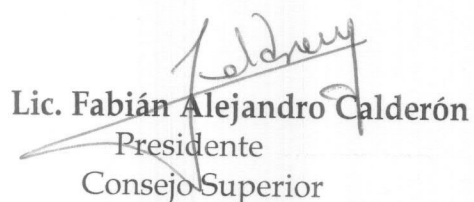 Lic. Fabián Alejandro Calderón
Presidente
Consejo Superior